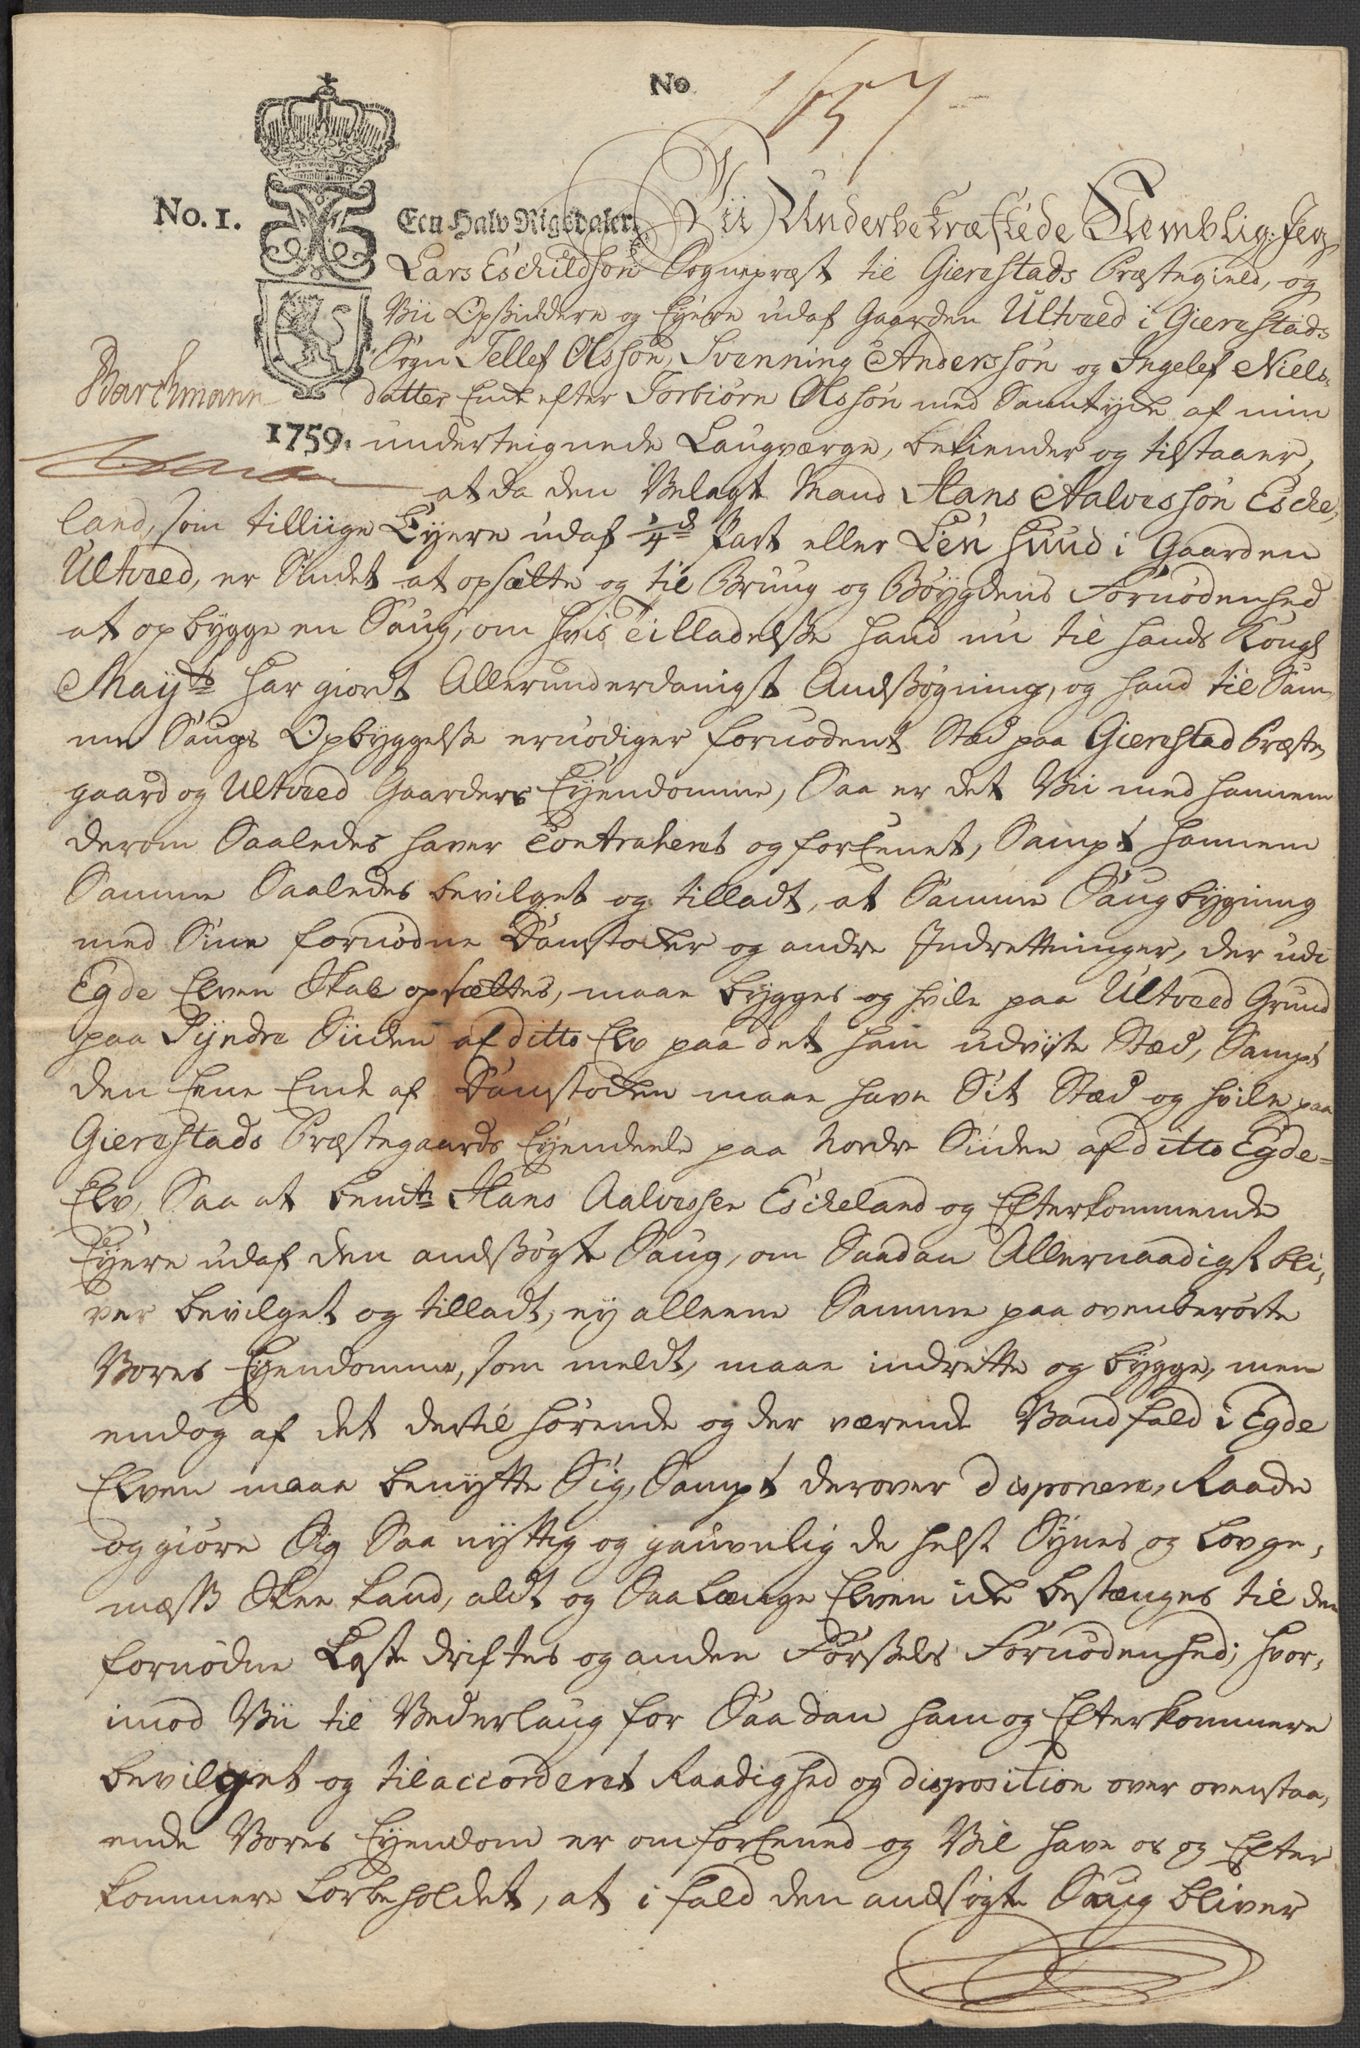 No 1657
No. 1.
Een Halv Rigsdaler.
Vii Underbekræftede Nemblig: Jeg,
Lars Eschildsøn Sognepræst til Gierestads Præstegield, og
Vii Opsiddere og Eyere udaf Gaarden Ultved i Gierestads
Sogn Tellef Olssøn, Svenning Anderssøn og Ingelef Niels-
Barchmann
datter Enke efter Torbiørn Olssøn med Samtycke af min
1759.
underteignede Laugværge, bekiender og tilstaaer,
at da den Velagte Mand Hans Aalvessøn Esche,
land, som tilliige Eyere udaf 1/4d Part eller Een Huud i Gaarden
Ultved, er Sindet at opsætte og til Bruug og Bøygdens Fornødenhed
at opbygge en Saug, om hvis Tilladelse hand nu til hands Kongl
Mayts har giordt Allerunderdanigst Andsøgning, og hand til Sam,
me Saugs Opbyggelse ernødiger fornødent Stæd paa Gierestad Præste,
gaard og Ultved Gaarders Eyendomme, Saa er det Vii med hannem
derom Saaledes haver Contraheret og foreenet, Sampt hannem
Samme Saaledes bevilget og tilladt, at Samme Saugbygning
med Sine fornødne Damstocker og andre Indrettninger, der udi
Egde Elven Skal opsættes, maae bygges og hvile paa Ultved Grund
paa Syndre Siiden af ditto Elv paa det ham udviste Stæd, Sampt
den Eene Ende af Damstocken maae have Sit Stæd og hvile paa
Gierestads Præstegaards Eyendeele paa Nordre Siiden af ditto Egde-
Elv, Saa at bemte Hans Aalvessen Escheland og Efterkommende
Eyere udaf den andsøgte Saug, om Saadan Allernaadigst bli,
ver bevilget og tilladt, ey alleene Samme paa ovenberørte
Vores Eyendomme, som meldt, maae indrette og bygge, men
endog af det dertil hørende og der værende Vandfald i Egde
Elven maae benytte Sig, Sampt derover disponere, Raade
og giøre Sig Saa nyttig og gauvnlig de helst Synes og Lovge,
mæss Skee kand, aldt og Saa Længe Elven icke bestænges til den
fornødne Laste driftes og anden Førsels Fornødenhed; hvor,
imod Vii til Vederlaug for Saadan ham og Efterkommere
bevilget og tilaccorderet Raadighed og disposition over ovenstaa,
ende Vores Eyendom er om foreened og Vil have os og Efter
kommere forbeholdet, at i fald den andsøgte Saug bliver